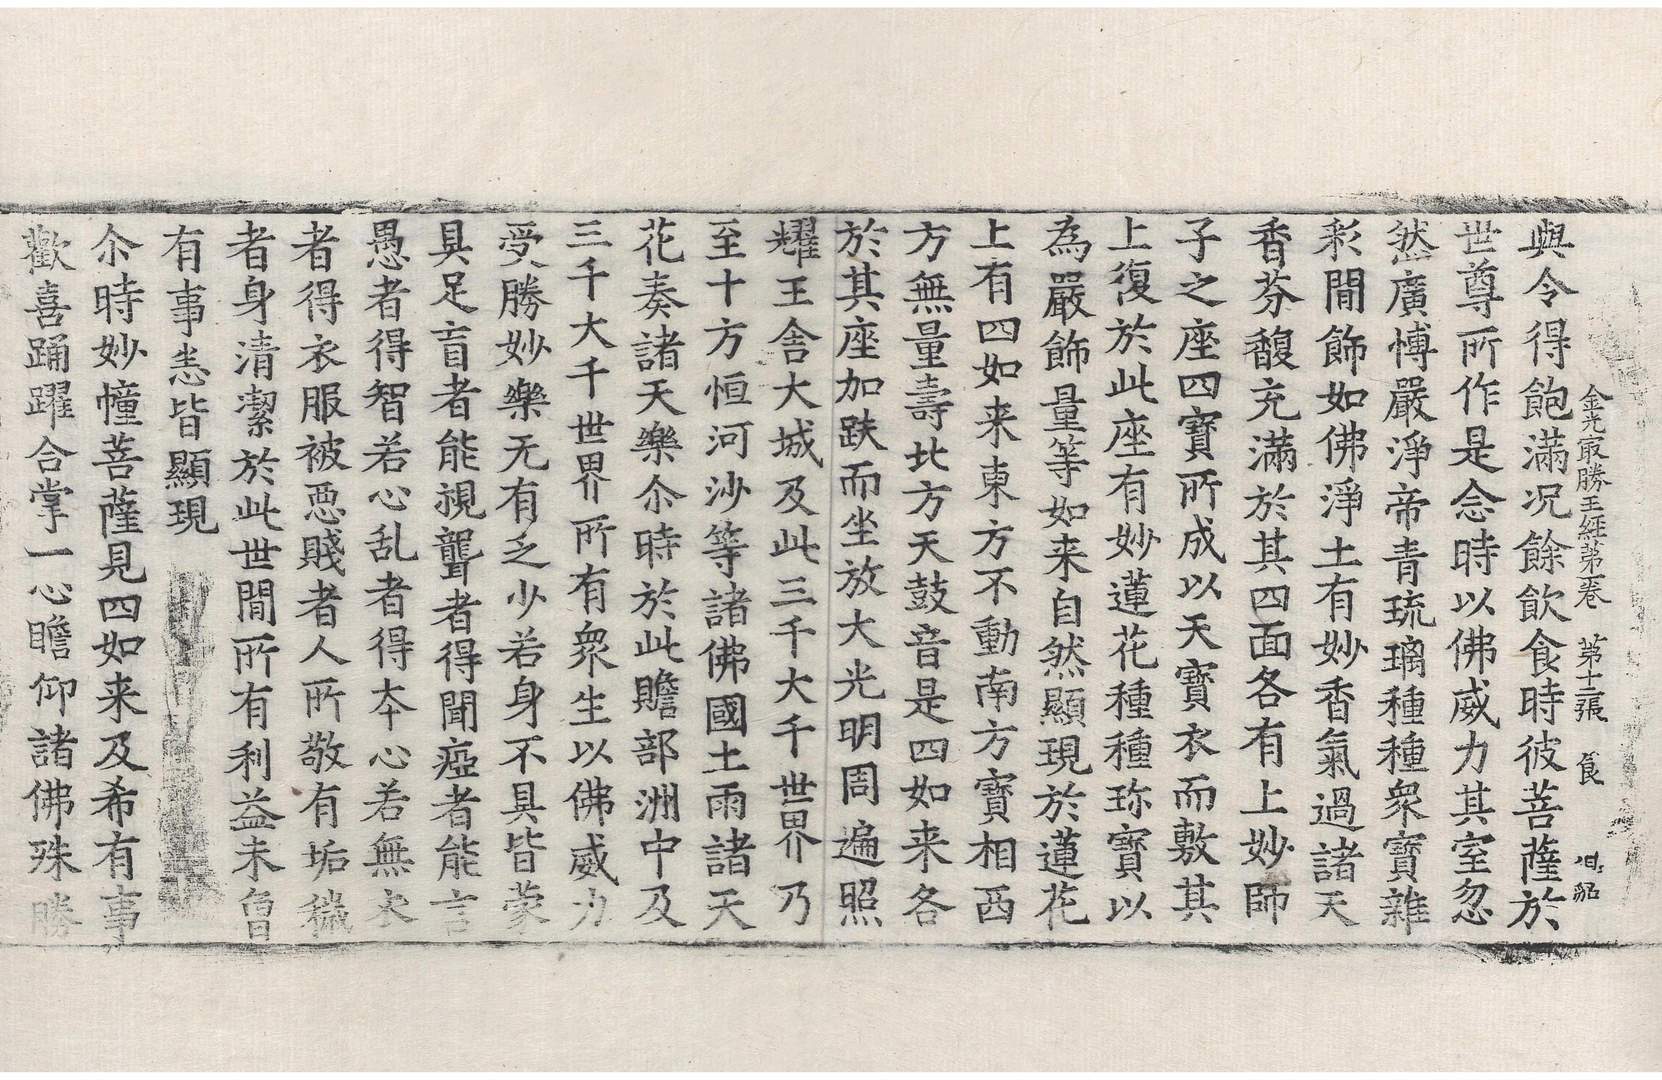 金光最勝王經第一卷 第十二張 食
與令得飽滿况餘飲食時彼菩薩於
世尊所作是念時以佛威力其室忽
然廣博嚴淨帝青琉璃種種衆寶雜
彩間飾如佛淨土有妙香氣過諸天
香芬馥充滿於其四面各有上妙師
子之座四寶所成以天寶衣而敷其
上復於此座有妙蓮花種種珎寶以
為嚴飾量等如来自然顯現於蓮花
上有四如来東方不動南方寶相西
方無量壽北方天鼓音是四如来各
於其座加趺而坐放大光明周遍照
耀王舍大城及此三千大千世界乃
至十方恒河沙等諸佛國土雨諸天
花奏諸天樂尒時於此贍部洲中及
三千大千世界所有衆生以佛威力
受勝妙樂无有乏少若身不具皆蒙
具足盲者能視聾者得聞瘂者能言
愚者得智若心乱者得夲心若無衣
者得衣服被惡賤者人所敬有垢穢
者身清潔於此世間所有利益未曾
有事悉皆顯現
尒時妙幢菩薩見四如来及希有事
歡喜踊躍合掌一心瞻仰諸佛殊勝